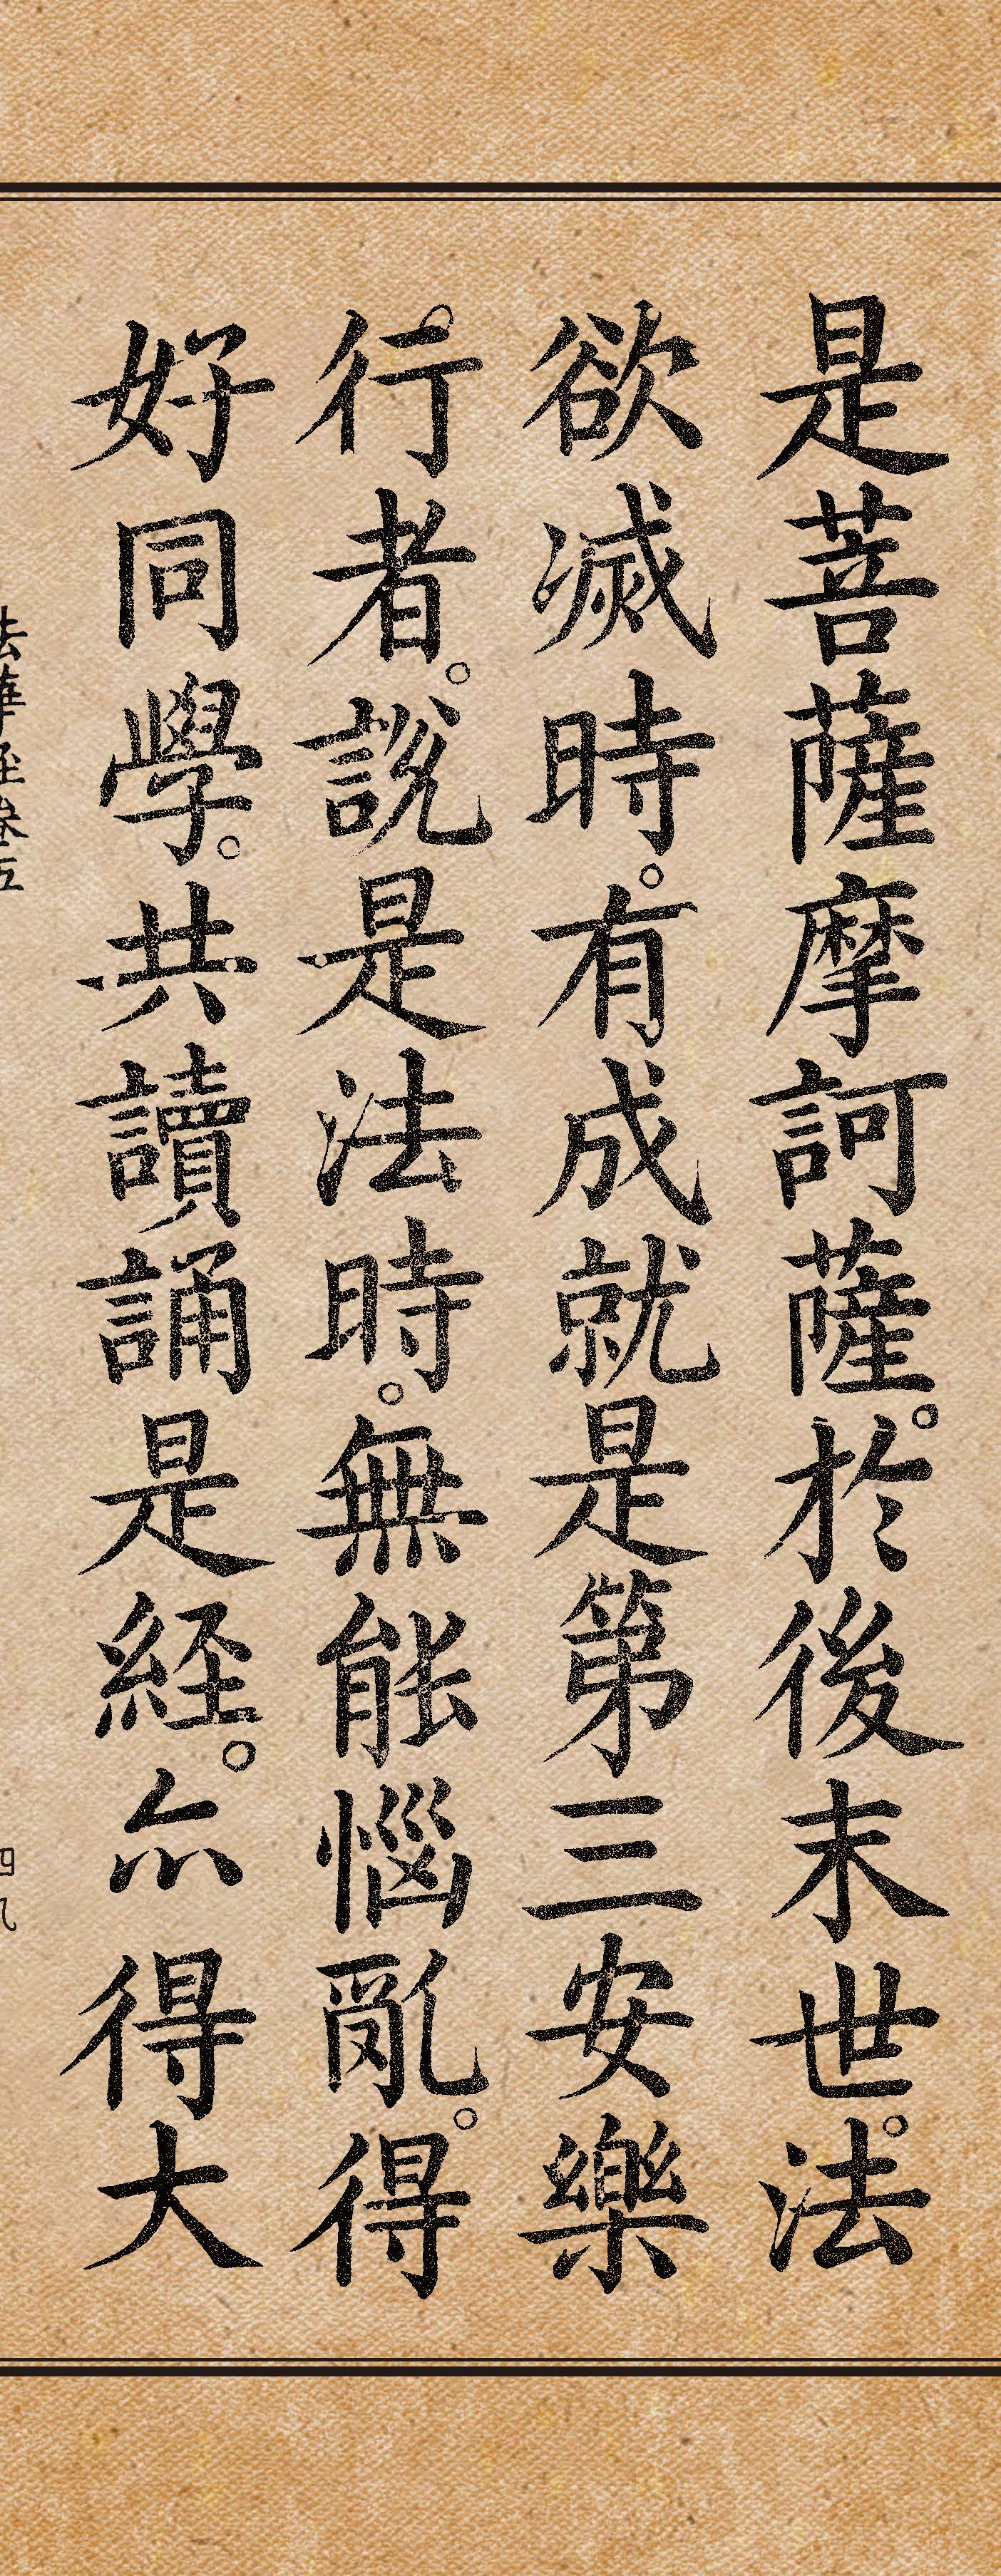 是菩薩摩訶薩。於後末世。法
欲滅時。有成就是第三安樂
行者。說是法時。無能惱亂。得
好同學。共讀誦是経。亦得大
法華経卷五
四九